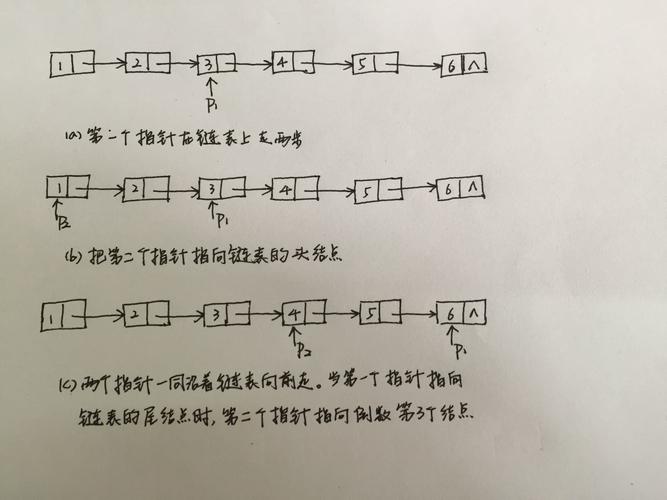 1 2 3 4 5 6 ∧
P1
(a) 第二个指针在链表上走两步
1 2 3 4 5 6 ∧
P2 P1
(b) 把第二个指针指向链表的头结点
1 2 3 4 5 6 ∧
P2 P1
(c) 两个指针一同沿着链表向前走。当第一个指针指向
链表的尾结点时，第二个指针指向倒数第3个结点